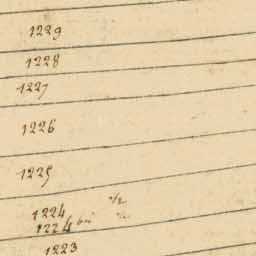 1229
1228
1227
1226
1225
1224 1/2
1224 bis
1223